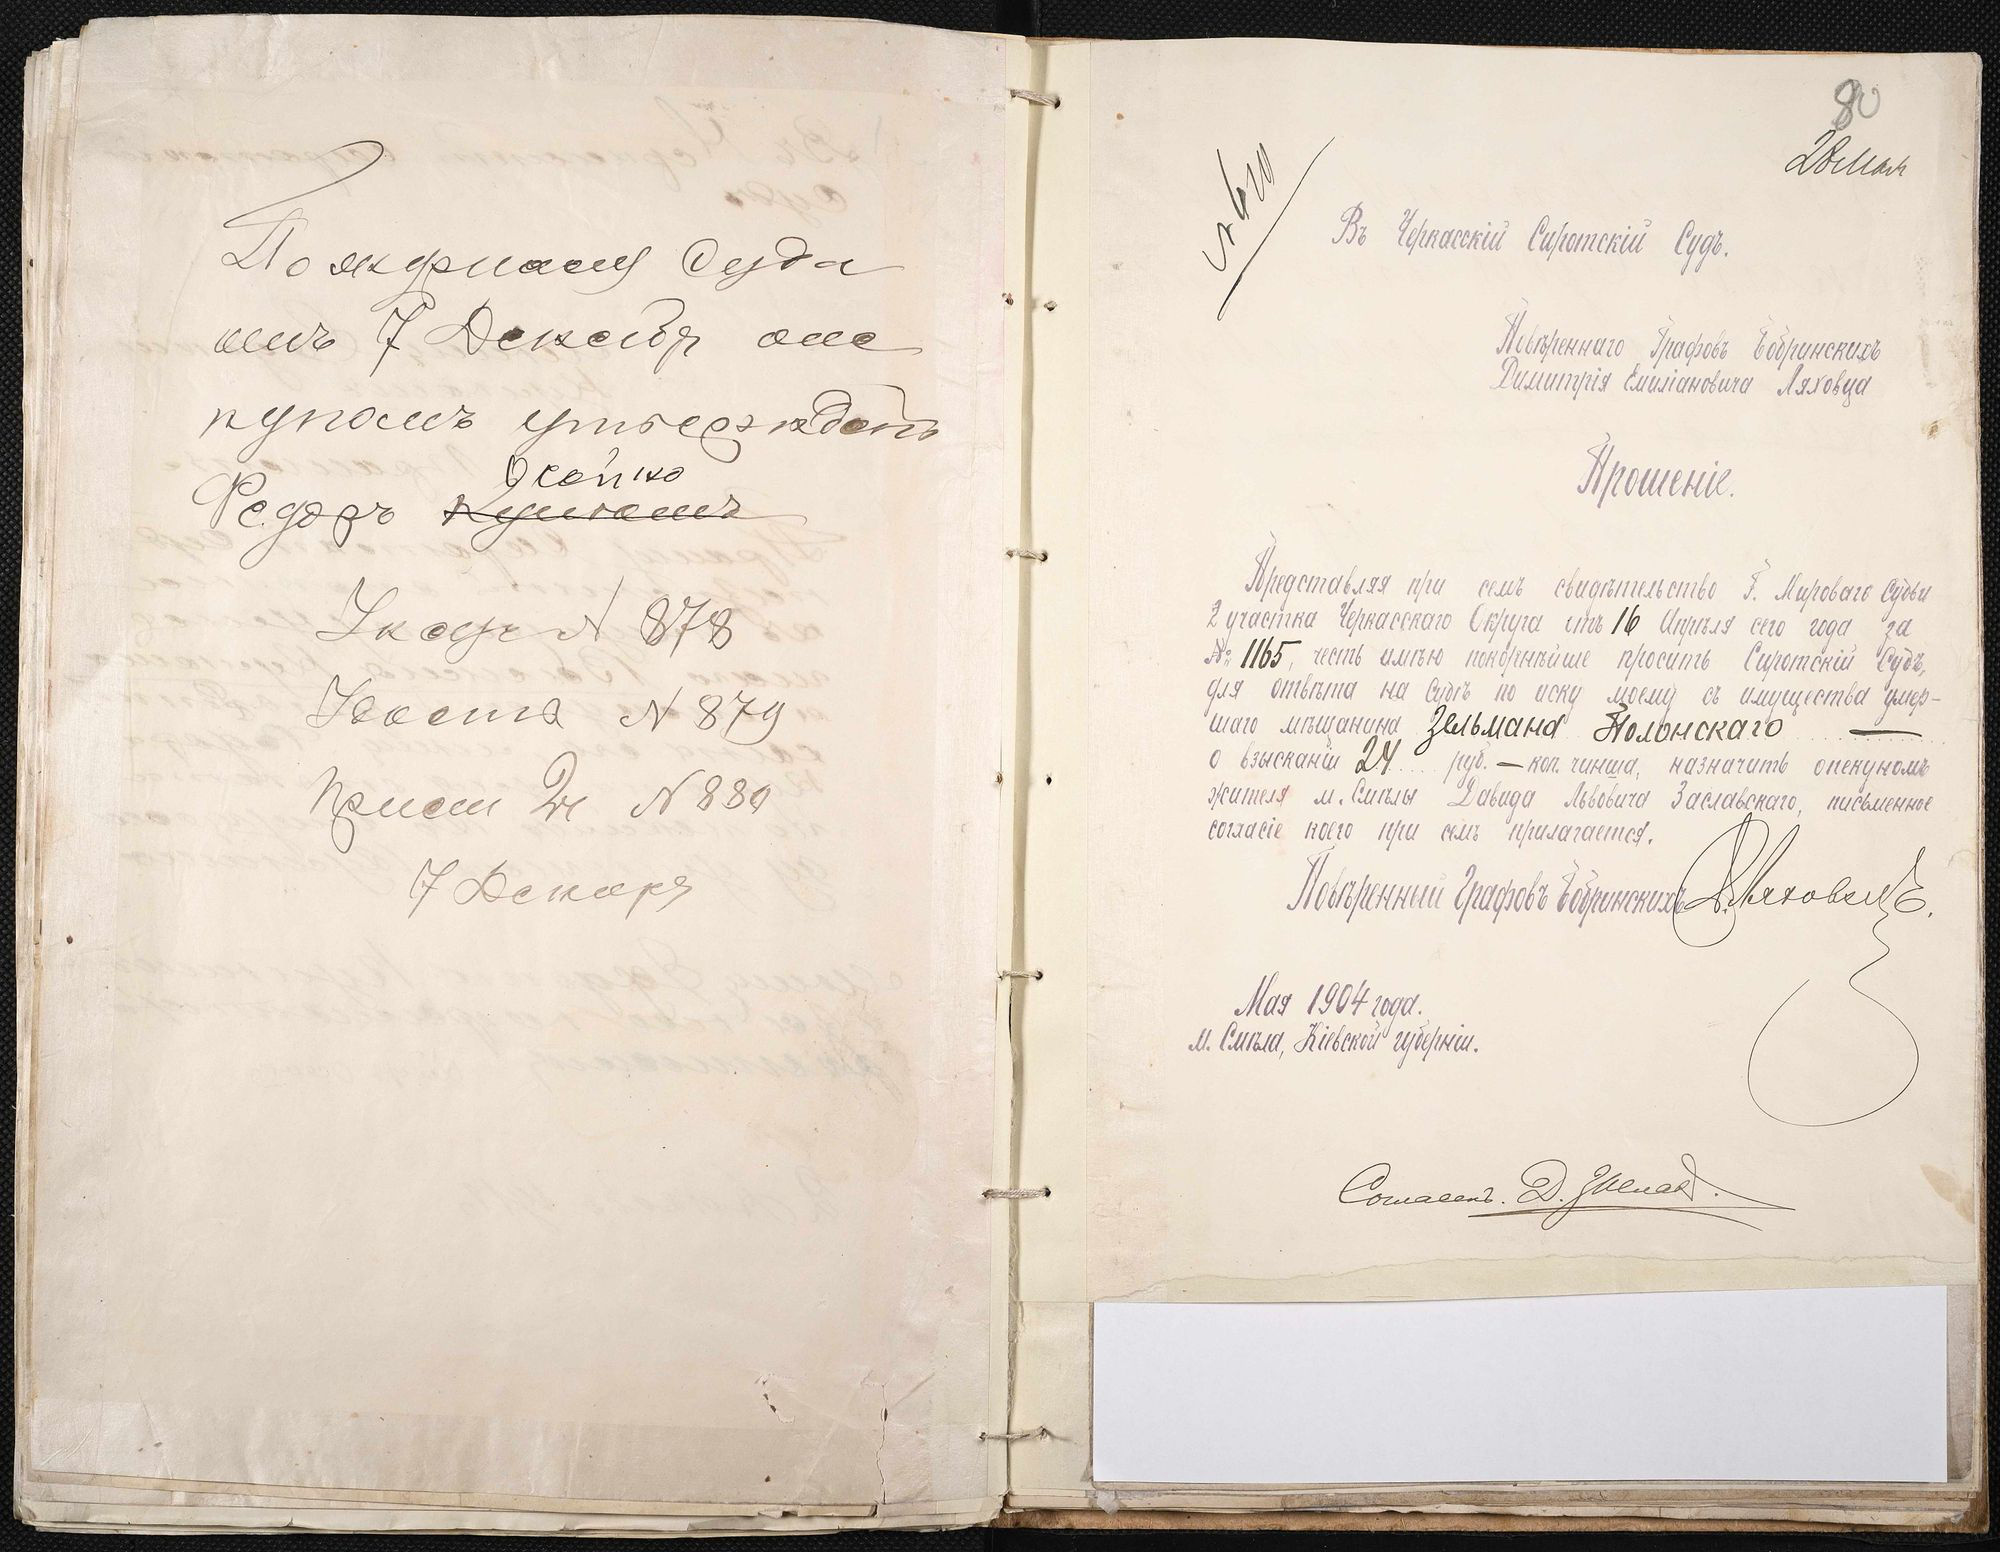 По журналу Суда
отъ 7 Декабря опе
куномъ утвержденъ
Осейко
Федоръ
Указъ N 878
N 879
Прист 2 ч N 880
7 Декабря
80
28 Мая
№ 610
Въ Черкасскій Сиротскій Судъ.
Повѣреннаго Графовъ Бобринскихъ
Димитрія Емиліановича Ляховца
Прошеніе.
Представляя при семъ свидѣтельство Г. Мироваго Судьи
2 участка Черкасскаго Округа отъ 16 Апрѣля сего года за
№ 1165, честь имѣю покорнѣйше просить Сиротскій Судъ,
для отвѣта на Судѣ по иску моему съ имущества умер-
шаго мѣщанина Зельмана Полонскаго —
о взысканіи 24 руб. — коп. чинша, назначить опекуномъ
жителя м. Смѣлы Давида Львовича Заславскаго, письменное
согласіе коего при семъ прилагается.
Повѣренный Графовъ Бобринскихъ Д. Ляховецъ.
Мая 1904 года.
м. Смѣла, Кіевской губерніи.
Согласенъ. Д. Заслав.